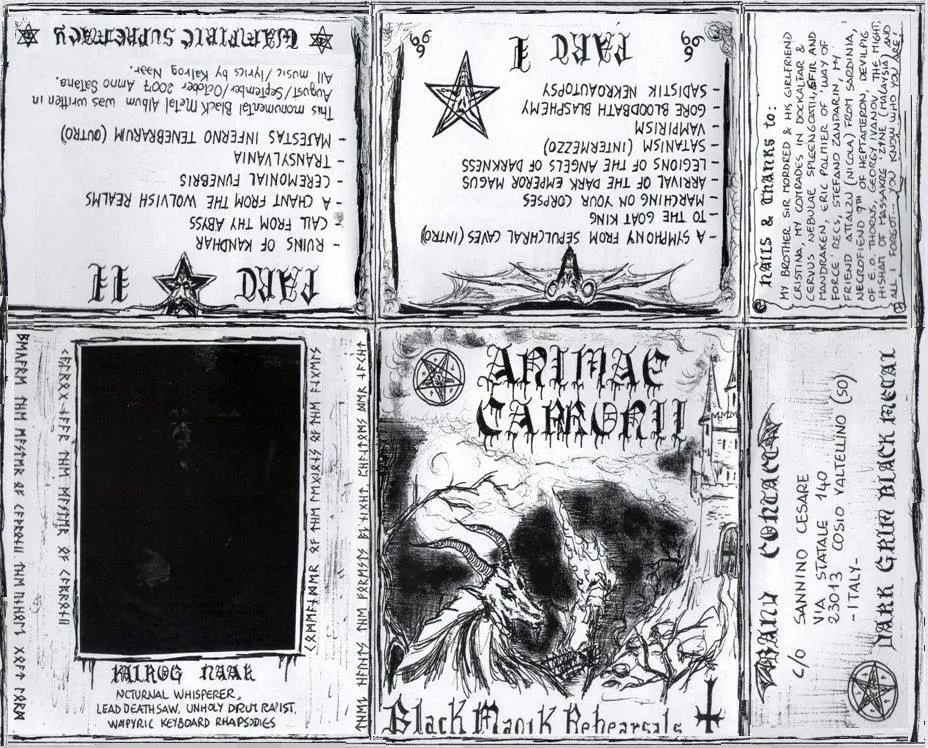 ANIMAE
CAPRONII
Black Manik Rehearsals
PART I
- A SYMPHONY FROM SEPULCHRAL CAVES (INTRO)
- TO THE GOAT KING
- MARCHING ON YOUR CORPSES
- ARRIVAL OF THE DARK EMPEROR MAGUS
- LEGIONS OF THE ANGELS OF DARKNESS
- SATANISM (INTERMEZZO)
- VAMPIRISM
- GORE BLOODBATH BLASPHEMY
- SADISTIK NEKROAUTOPSY
666
666
PART II
- RUINS OF KANDHAR
- CALL FROM THY ABYSS
- A CHANT FROM THE WOLVISH REALMS
- CEREMONIAL FUNEBRIS
- TRANSYLVANIA
- MAJESTAS INFERNO TENEBRARUM (OUTRO)
This monumental Black Metal Album was written in
August/September/October 2007 Anno Satana.
All music/lyrics by Kalrog Naar.
VAMPIRIC SUPREMACY
HAILS & THANKS to:
MY BROTHER SIR MORDRED & HIS GIRLFRIEND
CRISTINA, MY COMRADES IN DOCKALFAR &
CERVUS NEBULAE SPLEENGOATH, AESFIR AND
MANDRAKEN, ERIC PALMIER OF 'WAY OF
FORCE' RECS, STEFANO ZANDARIN, MY
FRIEND ATTALZU (NICOLA) FROM SARDINIA,
NECROFIEND 9TH OF HEPTAMERON, DEVILPIG
OF E.O.THORUS, GEORGY IVANOV THE MIGHT,
HISHAM OF MASSAKRE ZYNE (MALAYSIA) AND
ALL I FORGOT... YOU KNOW WHO YOU ARE!
KALROG NAAR
NCTURNAL WHISPERER,
LEAD DEATHSAW, UNHOLY DRUM RAPIST,
WAPYRIC KEYBOARD RHAPSODIES
BAND CONTACT
c/o SANNINO CESARE
VIA STATALE 140
23013 COSIO VALTELLINO (SO)
- ITALY -
DARK GRIM BLACK METAL